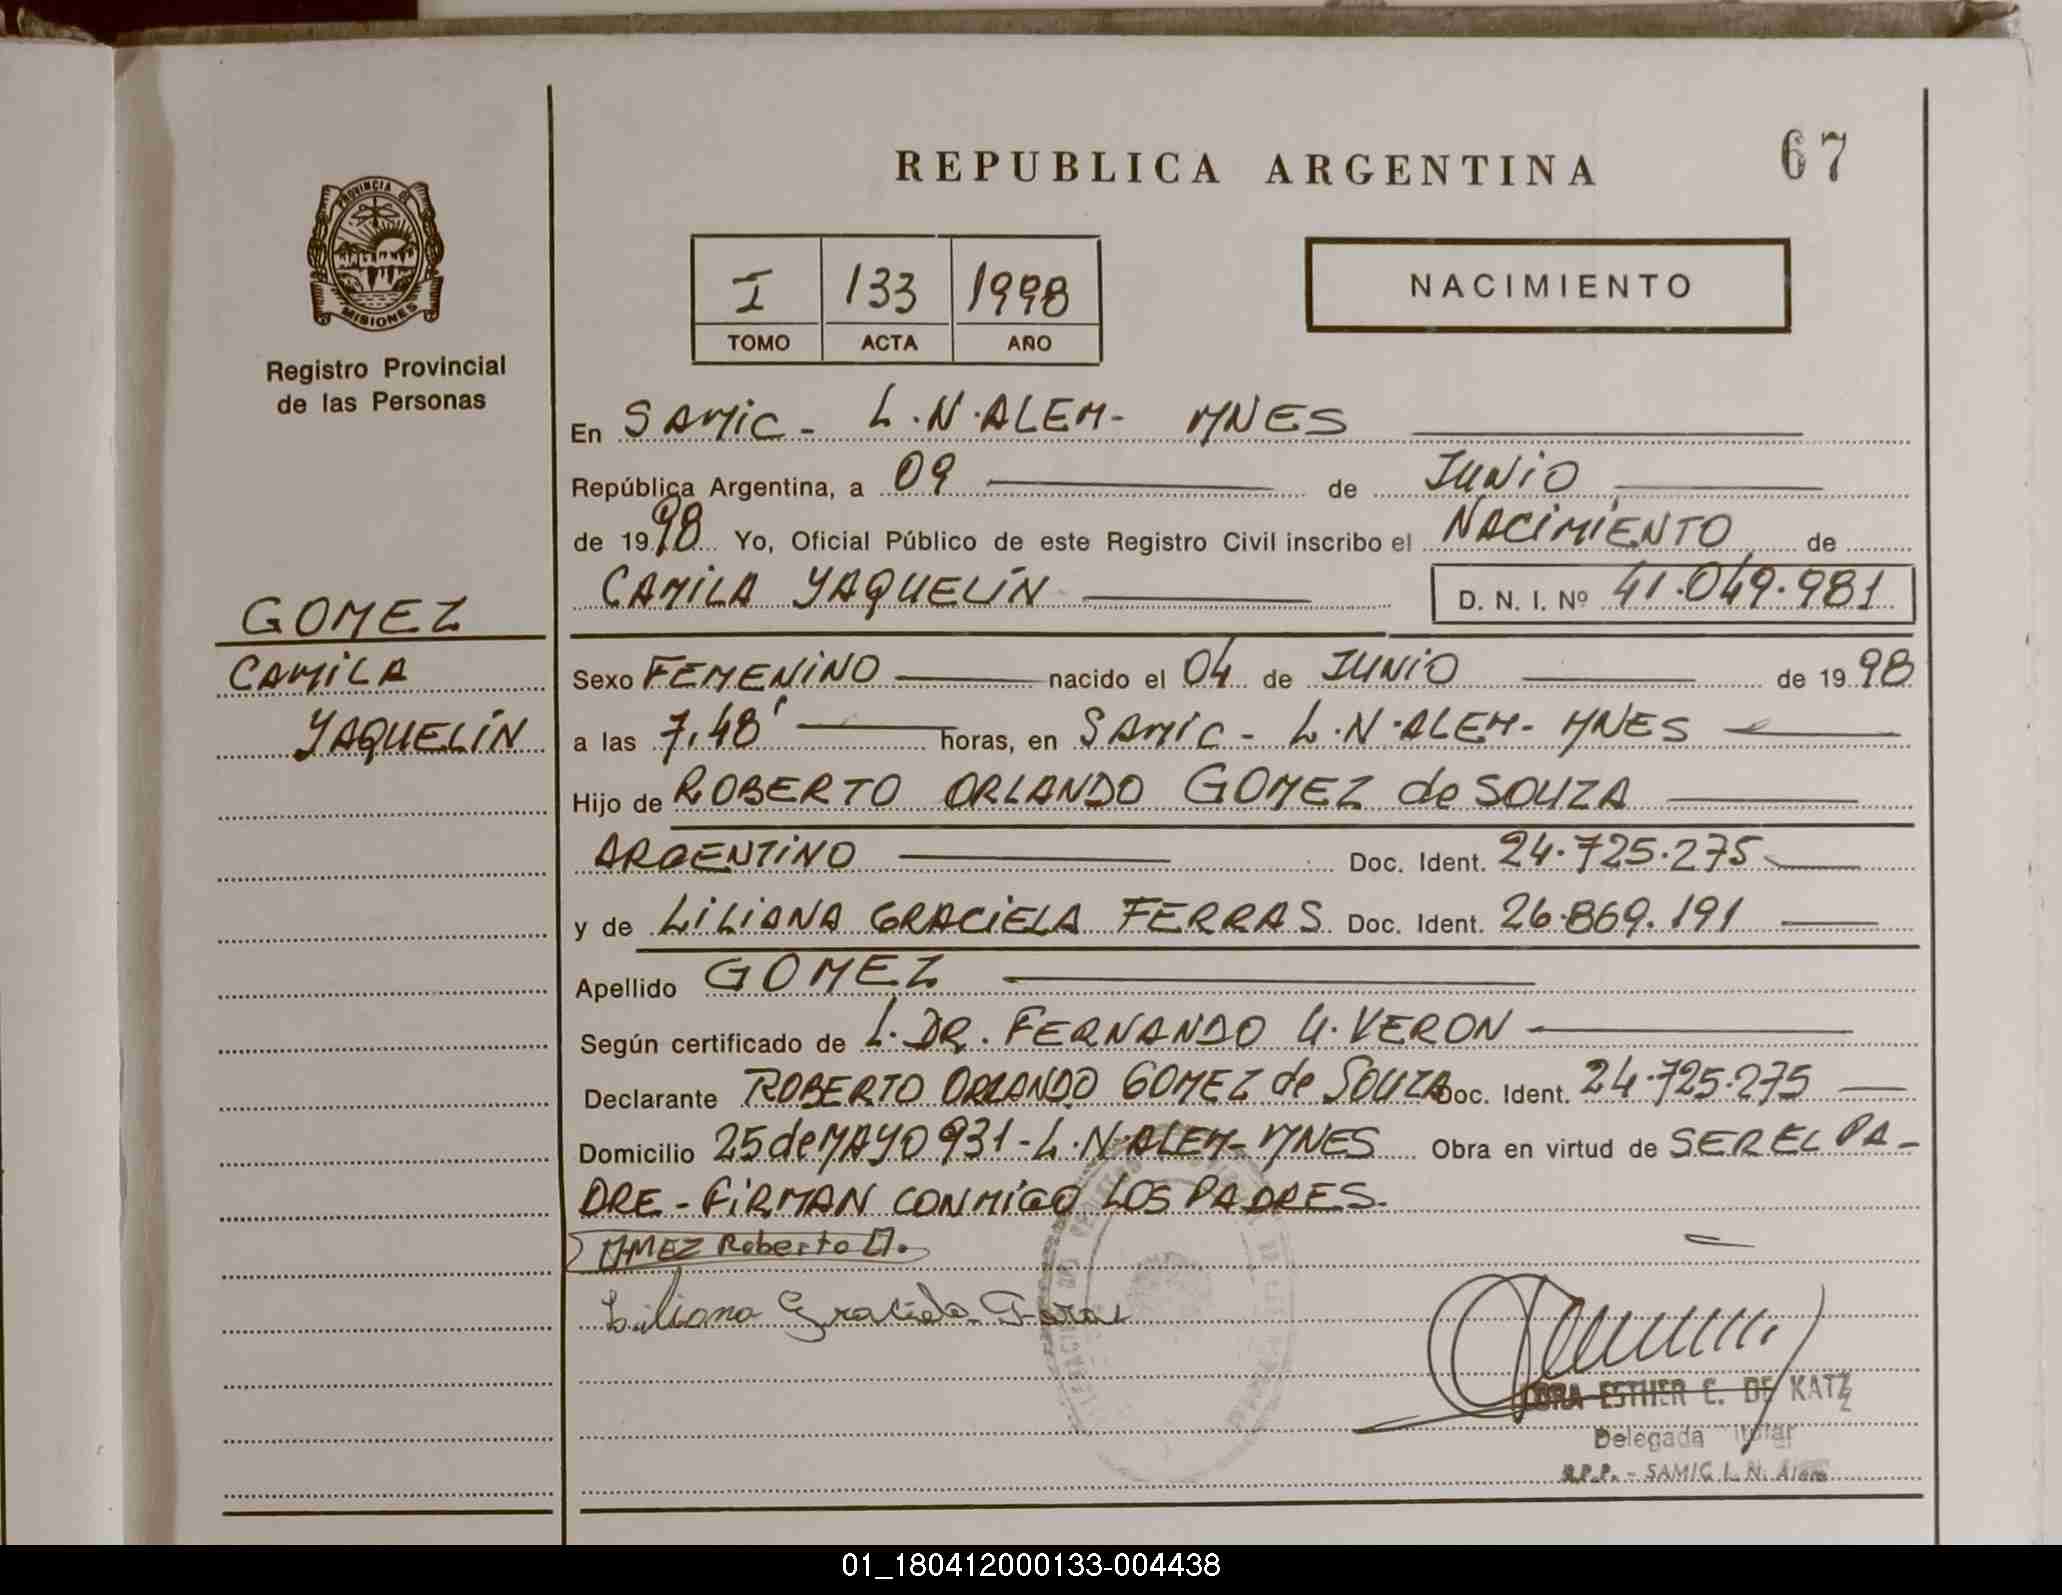 67
REPUBLICA ARGENTINA
PROVINCIA DE
MISIONES
Registro Provincial
de las Personas
I 133 1998
TOMO ACTA AÑO
NACIMIENTO
En SAMIC - L.N. ALEM - MNES
República Argentina, a 09 de JUNIO
de 1998 Yo, Oficial Público de este Registro Civil inscribo el NACIMIENTO de
CAMILA YAQUELÍN D. N. I. Nº 41.049.981
GOMEZ
CAMILA
YAQUELÍN
Sexo FEMENINO nacido el 04 de JUNIO de 1998
a las 7,48' horas, en SAMIC - L.N. ALEM - MNES
Hijo de ROBERTO ORLANDO GOMEZ de SOUZA
ARGENTINO Doc. Ident. 24.725.275
y de LILIANA GRACIELA FERRAS Doc. Ident. 26.869.191
Apellido GOMEZ
Según certificado de L. DR. FERNANDO U. VERON
Declarante ROBERTO ORLANDO GOMEZ de SOUZA Doc. Ident. 24.725.275
Domicilio 25 de MAYO 931 - L.N. ALEM - MNES Obra en virtud de SER EL PA-
DRE - FIRMAN CONMIGO LOS PADRES.
Roberto O.
Liliana Graciela
ESTHER C. DE KATZ
Delegada Titular
R.P.P. - SAMIC L. N. Alem
01_180412000133-004438